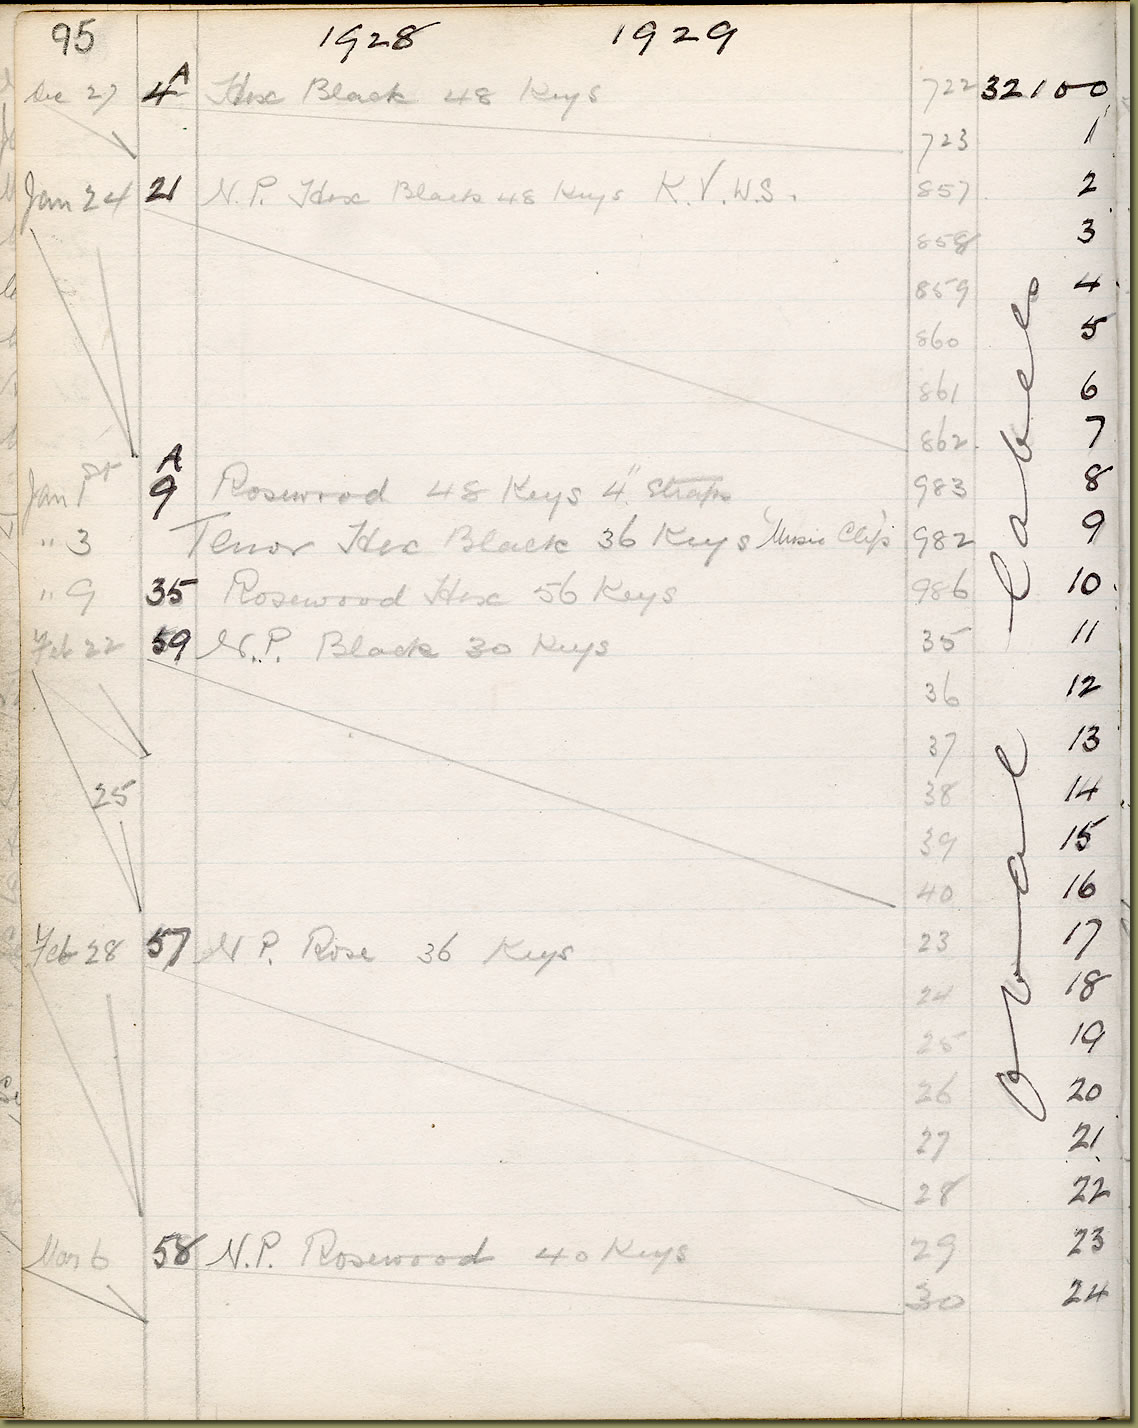 95 1928 1929
Dec 27 4A Hex Black 48 Keys 722 32100
723 1
Jan 24 21 N.P. Hex Black 48 Keys K.V.W.S. 857 2
858 3
859 4
860 5
861 6
862 7
Jan 1st 9A Rosewood 48 Keys 4" Straps 983 8
" 3 Tenor Hex Black 36 Keys 'Music Clip' 982 9
" 9 35 Rosewood Hex 56 Keys 986 10
Feb 22 59 N.P. Black 30 Keys 35 11
36 12
37 13
25 38 14
39 15
40 16
Feb 28 57 N P. Rose 36 Keys 23 17
24 18
25 19
26 20
27 21
28 22
Mar 6 58 N.P. Rosewood 40 Keys 29 23
30 24
Oval Labels